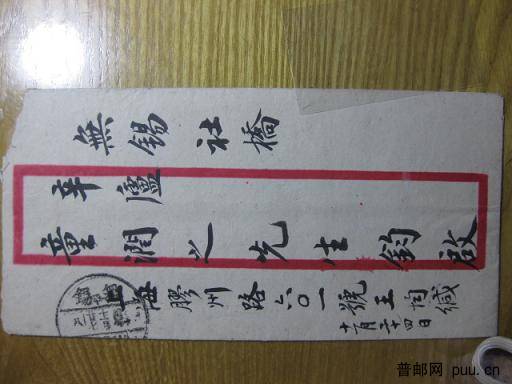 無錫社橋
辛廬
童潤之先生鈞啟
上海膠州路六〇一號王陶緘
十月二十四日
普邮网 puu.cn